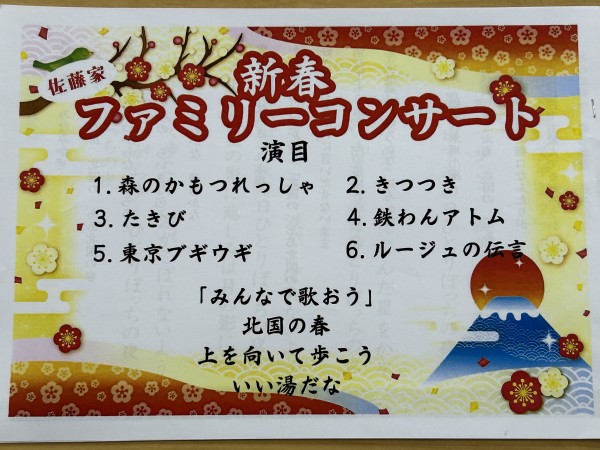 佐藤家
新春
ファミリーコンサート
演目
1. 森のかもつれっしゃ 2. きつつき
3. たきび 4. 鉄わんアトム
5. 東京ブギウギ 6. ルージュの伝言
「みんなで歌おう」
北国の春
上を向いて歩こう
いい湯だな